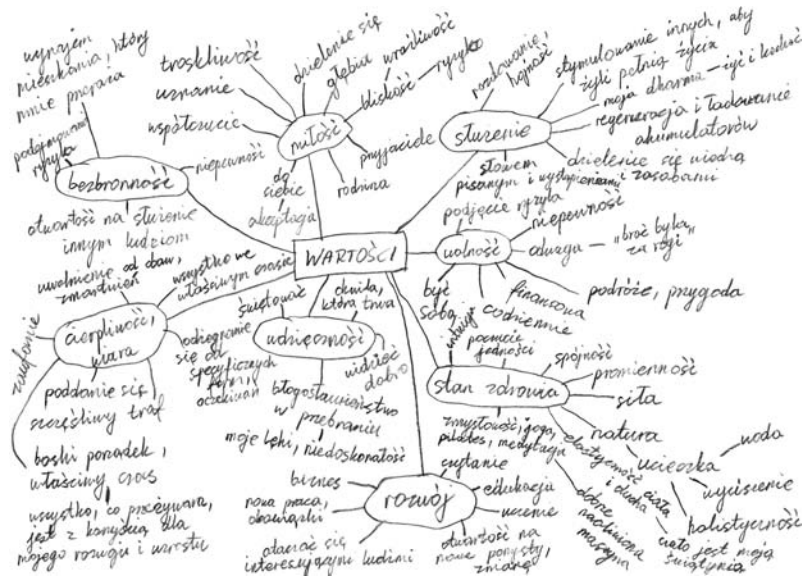 WARTOŚCI
bezbronność
wynajem
mieszkania, który
mnie przeraża
podejmowanie
ryzyka
niepewność
otwartość na służenie
innym ludziom
miłość
troskliwość
uznanie
współczucie
dzielenie się
głębia
wrażliwość
bliskość — ryzyko
przyjaciele
rodzina
do
siebie
akceptacja
służenie
rozdawanie,
hojność
stymulowanie innych, aby
żyli pełnią życia
moja dharma — żyć i kochać
regeneracja i ładowanie
akumulatorów
dzielenie się wiedzą
i zasobami
słowem
pisanym i wystąpieniami
wolność
podjęcie ryzyka
niepewność
odwaga — "brać byka
za rogi"
podróże, przygoda
finansowa
codziennie
być
sobą
cierpliwość,
wiara
uwolnienie od obaw,
zmartwień
wszystko we
właściwym czasie
odżegnanie
się od
specyficznych
form,
oczekiwań
zaufanie
poddanie się
szczęśliwy traf
boski porządek,
właściwy czas
wszystko, co przeżywam,
jest z korzyścią dla
mojego rozwoju i wzrostu
wdzięczność
świętować
chwila,
która trwa
widzieć
dobro
błogosławieństwo
w
przebraniu
moje lęki, niedoskonałość
stan zdrowia
intuicja
poczucie
jedności
spójność
promienność
siła
natura
ucieczka
woda
wyciszenie
holistyczność
zmysłowość, joga,
pilates, medytacja
elastyczność ciała
i ducha
ciało jest moją
świątynią
dobrze
naoliwiona
maszyna
rozwój
czytanie
edukacja
uczenie
otwartość na
nowe pomysły,
zmianę
biznes
nowa praca,
obowiązki
otaczać się
interesującymi ludźmi